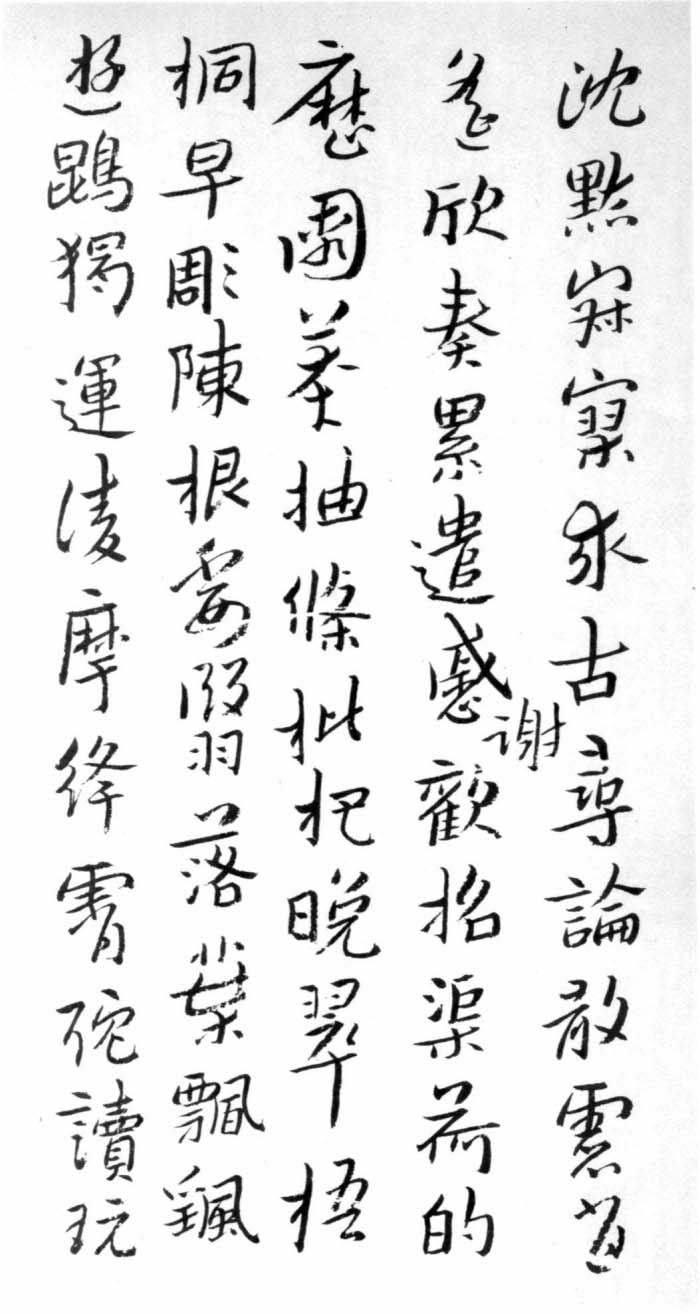 沈默寂寥求古尋論散慮逍
遙欣奏累遣慼謝歡招渠荷的
歷園莽抽條枇杷晚翠梧
桐早彫陳根委翳落葉飄颻
遊鵾獨運凌摩絳霄耽讀玩